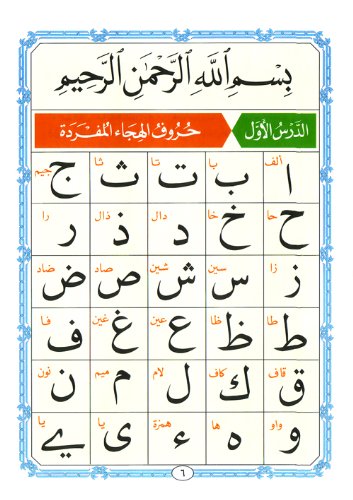 بِسْمِ ٱللَّهِ ٱلرَّحْمَٰنِ ٱلرَّحِيمِ
الدَّرْسُ الأَوَّل
حُرُوفُ الهِجَاءِ المُفْرَدَة
ألف با تا ثا جيم
ا ب ت ث ج
حا خا دال ذال را
ح خ د ذ ر
زا سين شين صاد ضاد
ز س ش ص ض
طا ظا عين غين فا
ط ظ ع غ ف
قاف كاف لام ميم نون
ق ك ل م ن
واو ها همزة يا يا
و ه ء ى ي
٦